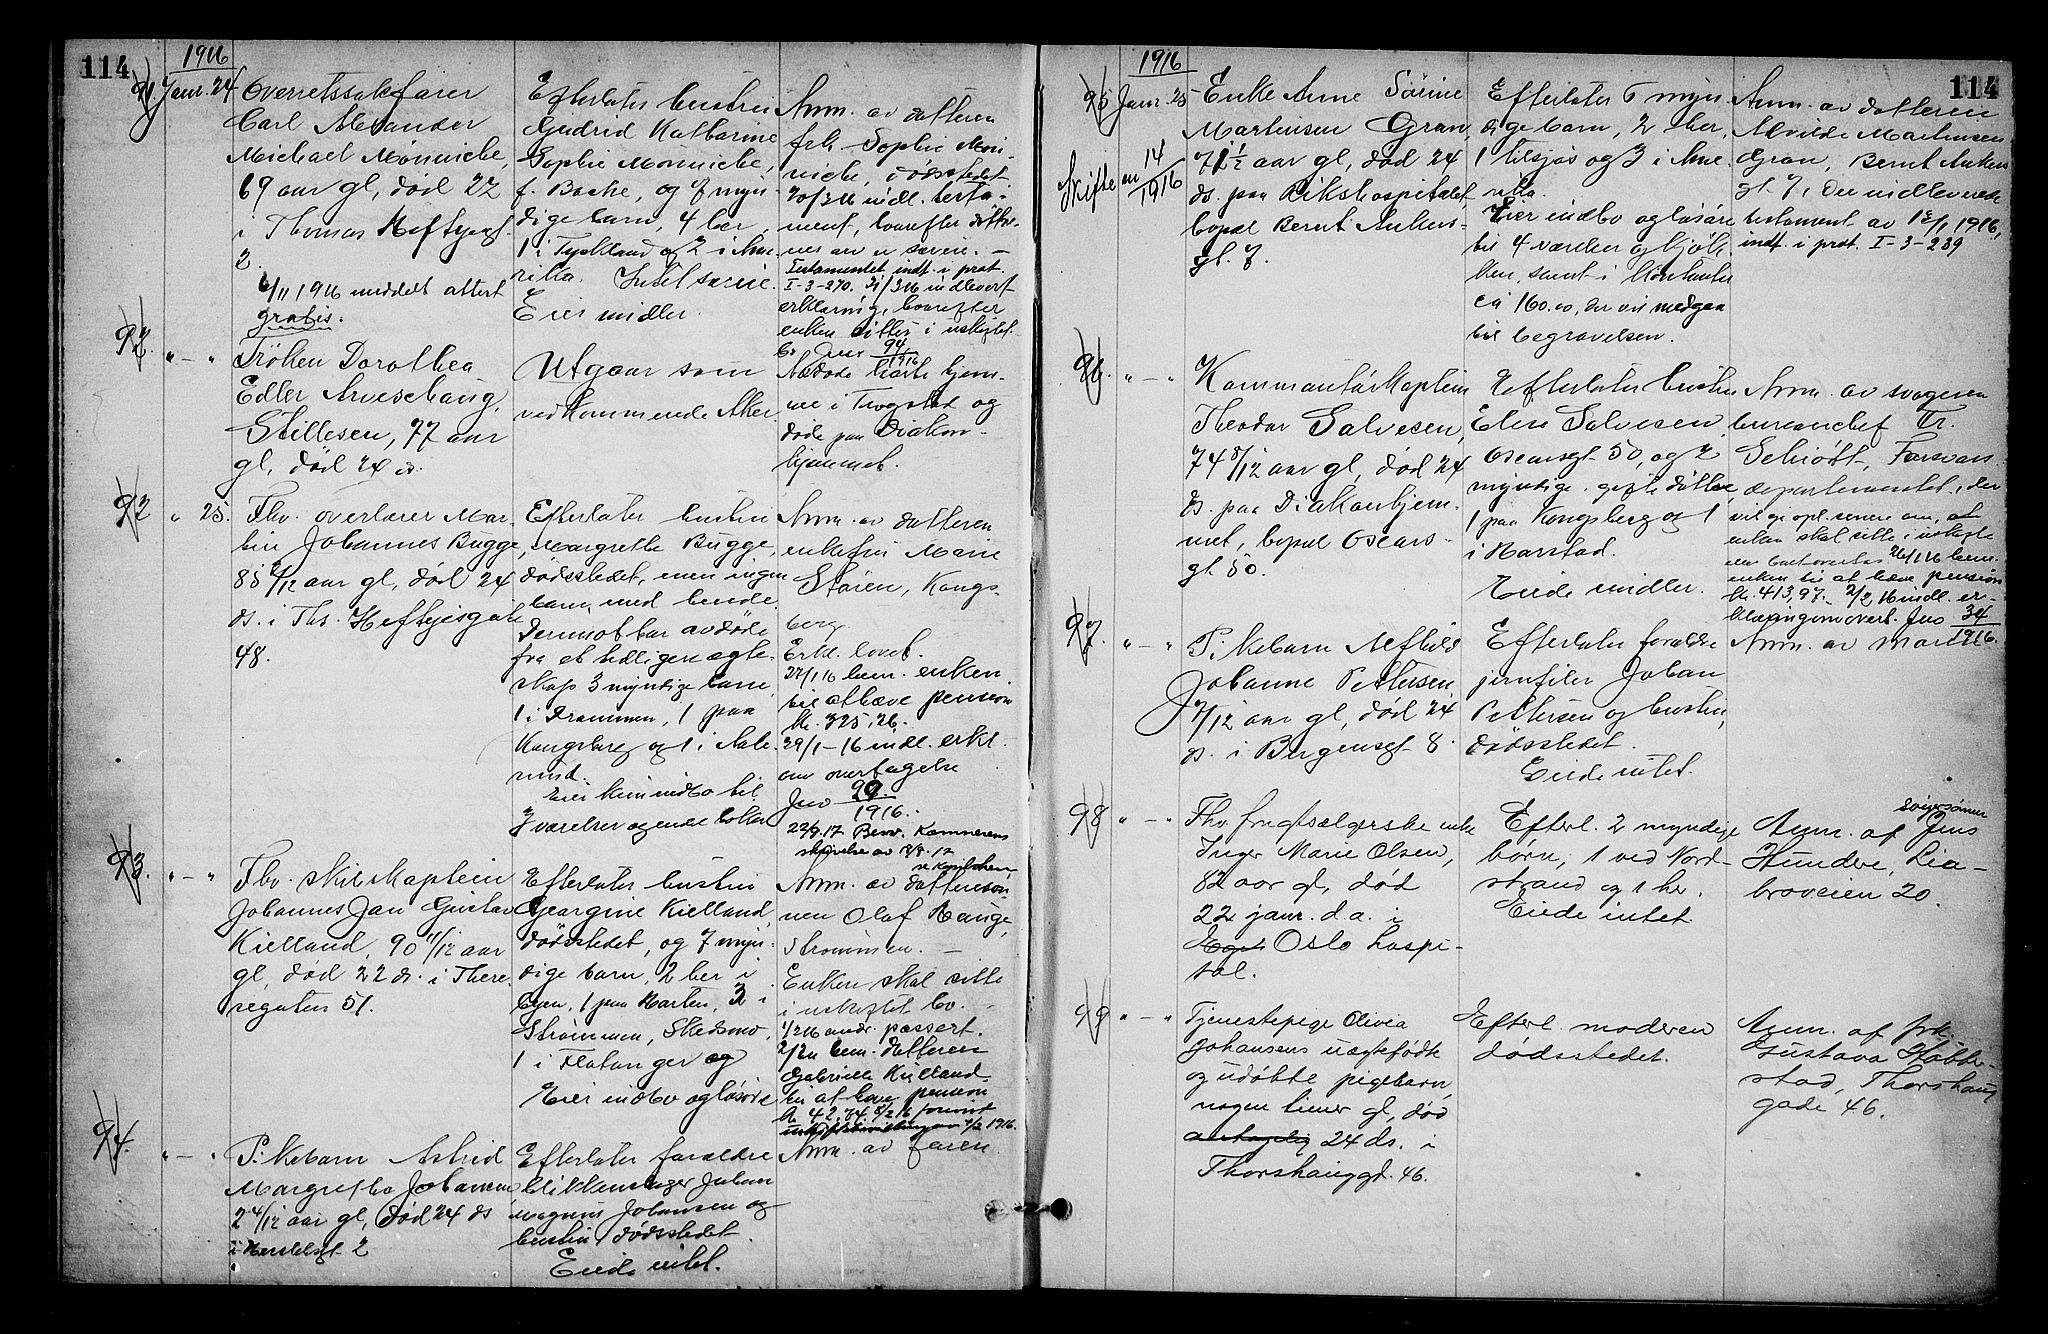 114
1916
91
Janr. 24
Overretssakfører
Carl Alexander
Michael Mønniche,
69 aar gl, død 22
i Thomas Heftyesgt
2.
6/11 1916 meddelt attest
gratis.
Efterlater hustru
Gudrid Katharine
Sophie Mønniche,
f. Backe, og 7 myn-
dige barn, 4 her,
1 i Tyskland og 2 i Ame-
rika. Intet særeie.
Eier midler.
Anm. av datteren
frk. Sophie Møn-
niche, dødsstedet
20/3 16 indl. testa-
ment, hvorefter døttre-
nes arv er særeie. —
Testamentet indf. i prot.
I-3-270. 31/3 16 indlevert
erklæring, hvorefter
enken sitter i uskiftet
bo Jno 94/1916
92.
" — "
Frøken Dorothea
Edler
Stillesen, 77 aar
gl, død 20 ds.
Utgaar som
vedkommende Aker
Afdøde hadde hjem-
me i Trøgstad og
døde paa Diakon-
hjemmet.
92
" 25.
Fhv. overlærer Mar-
tin Johannes Bugge,
85 /12 aar gl, død 24
ds. i Ths. Heftyesgate
48.
Efterlater hustru
Margrethe Bugge,
dødsstedet, men ingen
barn med hende.
Derimot har avdøde
fra et tidligere egte-
skap 3 myndige barn,
1 i Drammen, 1 paa
Kongsberg og 1 i Aale-
sund.
Eier kun indbo til
3 værelser og endel bøker
Anm. av datteren
enkefru Marie
Støren, Kongs-
berg.
Erkl. lovet.
27/1 16 bem. enken
til at hæve pension
kr. 325,26.
29/1-16 indl. erkl.
om overtagelse
Jno 29./1916.
22/9.17 Bem. Kæmnerens
skrivelse av 18/9.17
93.
" — "
Fhv. skibskaptein
Johannes Jan Gustav
Kielland, 90 11/12 aar
gl, død 22 ds. i There-
segaten 51.
Efterlater hustru
Georgine Kielland,
dødsstedet, og 7 myn-
dige barn, 2 her i
byen, 1 paa Horten, 3 i
Strømmen, Skedsmo,
1 i Flatanger og
Eier indbo og løsøre
Anm. av dattersøn-
nen Olaf Hauge,
Strømmen. —
Enken skal sitte
i uskiftet bo. —
1/2 16 andr. passert.
2/2 16 bem. datteren
Gabrielle Kielland
til at hæve pension
kr 42,74. 8/2 16 forevist
uskiftebevilling av 4/2 1916.
94.
" — "
Pikebarn Astrid
Margretha Johansen
2 4/12 aar gl, død 24 ds
i Herslebsgt 2
Efterlater forældre
blikkenslager Johan
Magnus Johansen og
hustru, dødsstedet.
Eiede intet.
Anm. av faren.
114
1916
95
Janr. 25
Skifte av 14/1916
Enke Anne Sørine
Martinsen Gran,
71 1/2 aar gl, død 24
ds. paa Rikshospitalet,
bopæl Bernt Ankers-
gt. 7.
Efterlater 6 myn-
dige barn, 2 her,
1 tilsjøs og 3 i Ame-
rika.
Eier indbo og løsøre
til 4 værelser og kjøk-
ken, samt i kontanter
ca 160.00, der vil medgaa
til begravelsen.
Anm. av datteren
Alvilde Martinsen
Gran, Bernt Ankers-
gt. 7, der indleverede
testament av 13/1 1916,
indf. i prot. I-3-239
96.
" — "
Kommandørkaptein
Theodor Salvesen,
74 8/12 aar gl, død 24
ds. paa Diakonhjem-
met, bopæl Oscars-
gt. 50.
Efterlater hustru
Elise Salvesen,
Oscarsgt 50, og 2
myndige gifte døttre
1 paa Kongsberg og 1
i Harstad.
Eiede midler.
Anm. av svogeren
bureauchef Fr.
Schiøtt, Forsvars-
departementet, der
vil gi opl. senere om, at
enken skal sitte i uskifte
eller boet overtas 26/1 16 bem.
enken til at hæve pension
kr. 413,97. — 2/2 16 indl. er-
klæring om overt. Jno 34/1916.
97.
" — "
Pikebarn Alfhild
Johanne Pettersen,
7/12 aar gl, død 24
ds. i Bergensgt 8.
Efterlater forældre
jernfiler Johan
Pettersen og hustru,
dødsstedet.
Eiede intet.
Anm. av mor
98
" — "
Fhv. frugtsælgerske enke
Inger Marie Olsen,
82 aar gl, død
22 janr. d.a. i
Oslo hospi-
tal.
Efterl. 2 myndige
børn, 1 ved Nord-
strand og 1 her.
Eiede intet.
Anm. af svigersønnen Jens
Hundere, Lia-
broveien 20.
99
" — "
Tjenestepige Olivia
Johansens uægtefødte
og udøbte pigebarn,
nogen timer gl, død
antagelig 24 ds. i
Thorshauggd. 46.
Efterl. moderen
dødsstedet.
Anm. af frk.
Gustava Hobbe-
stad, Thorshaug-
gade 46.